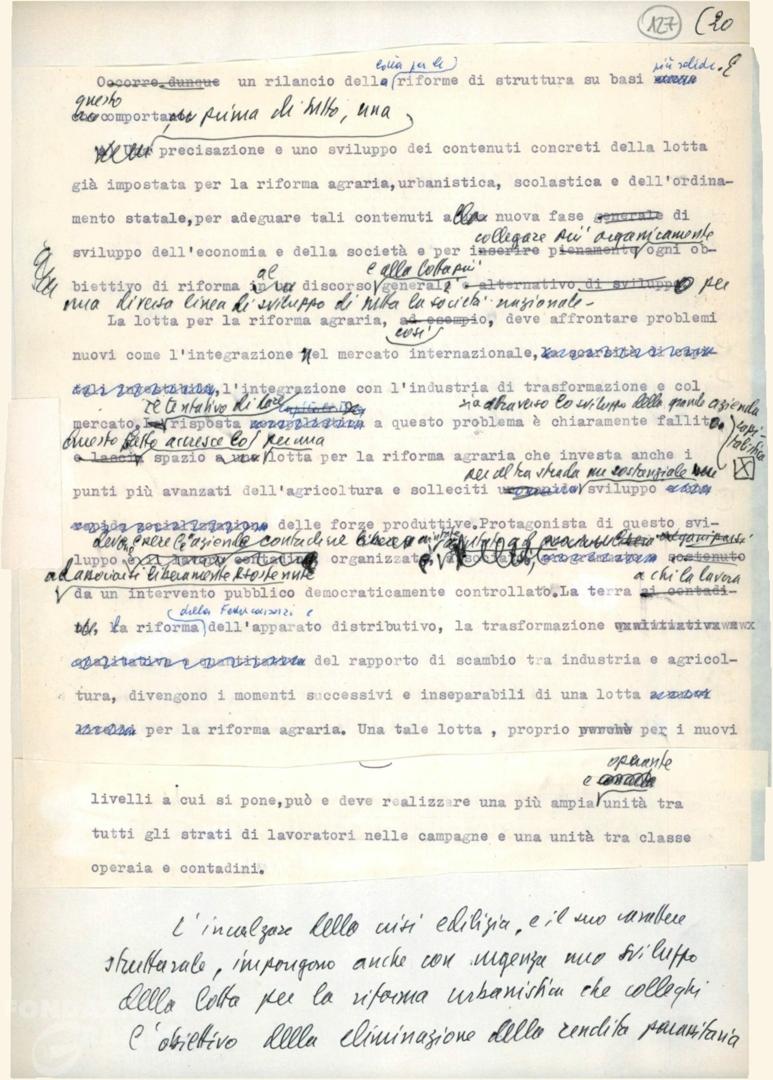 127 (20
lotta per le
più solide. E
Occorre dunque un rilancio della riforme di struttura su basi
questo
comportare prima di tutto, una
precisazione e uno sviluppo dei contenuti concreti della lotta
già impostata per la riforma agraria,urbanistica, scolastica e dell'ordina-
mento statale,per adeguare tali contenuti alla nuova fase generale di
collegare più organicamente
sviluppo dell'economia e della società e per inserire pienamente ogni ob-
al e alla lotta più
biettivo di riforma in un discorso generale e alternativo di sviluppo per
una diversa linea di sviluppo di tutta la società nazionale-
La lotta per la riforma agraria, ad esempio, deve affrontare problemi
così
nuovi come l'integrazione nel mercato internazionale,
l'integrazione con l'industria di trasformazione e col
Il tentativo di dare
sia attraverso lo sviluppo della grande azienda
capi-
talistica
mercato. La risposta a questo problema è chiaramente fallito
Questo fatto accresce lo per una
e lascia spazio a una lotta per la riforma agraria che investa anche i
per altra strada un sostanziale
punti più avanzati dell'agricoltura e solleciti sviluppo
rapida socializzazione delle forze produttive.Protagonista di questo svi-
deve essere l'azienda contadina libera
luppo è organizzata sostenuto
ad associarsi liberamente e sostenuta
a chi la lavora
da un intervento pubblico democraticamente controllato.La terra ai contadi-
della Federconsorzi e
la riforma dell'apparato distributivo, la trasformazione
qualitativa e quantitativa del rapporto di scambio tra industria e agricol-
tura, divengono i momenti successivi e inseparabili di una lotta
per la riforma agraria. Una tale lotta , proprio perchè per i nuovi
operante
e
livelli a cui si pone,può e deve realizzare una più ampia unità tra
tutti gli strati di lavoratori nelle campagne e una unità tra classe
operaia e contadini.
L'incalzare della crisi edilizia, e il suo carattere
strutturale, impongono anche con urgenza uno sviluppo
della lotta per la riforma urbanistica che colleghi
l'obiettivo della eliminazione della rendita parassitaria